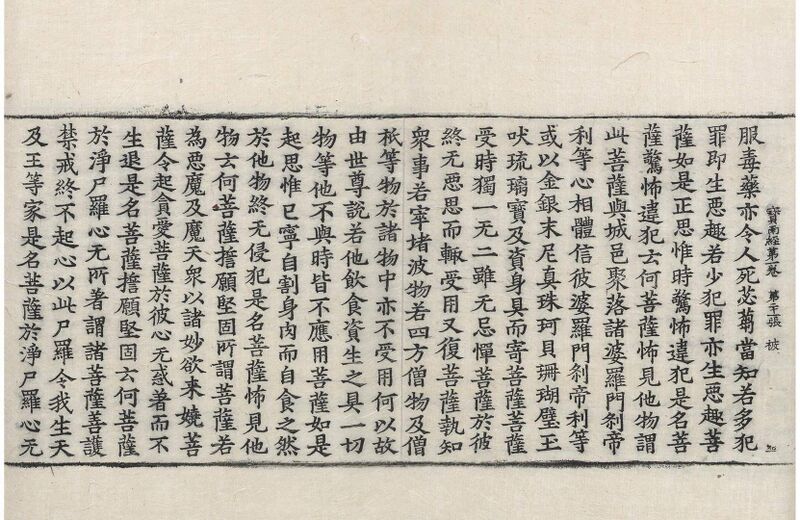 服毒藥亦令人死苾蒭當知若多犯
寶雨經第一卷 張 被
罪即生惡趣若少犯罪亦生惡趣菩
薩如是正思惟時驚怖違犯是名菩
薩驚怖違犯云何菩薩怖見他物謂
此菩薩與城邑聚落諸婆羅門剎帝
利等心相體信彼婆羅門剎帝利等
或以金銀末尼真珠珂貝珊瑚璧玉
吠琉璃寶及資身具而寄菩薩菩薩
受時獨一无二雖无忌憚菩薩於彼
終无惡思而輒受用又復菩薩執知
衆事若窣堵波物若四方僧物及僧
祇等物於諸物中亦不受用何以故
由世尊說若他飲食資生之具一切
物等他不與時皆不應用菩薩如是
起思惟已寧自割身肉而自食之然
於他物終无侵犯是名菩薩怖見他
物云何菩薩擔願堅固所謂菩薩若
為惡魔及魔天衆以諸妙欲来嬈菩
薩令起貪愛菩薩於彼心无惑著而不
生退是名菩薩擔願堅固云何菩薩
於淨尸羅心无所著謂諸菩薩善護
禁戒終不起心以此尸羅令我生天
及王等家是名菩薩於淨尸羅心无